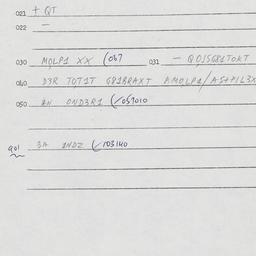 021 + QT
022 —
030 MOLP1 XX (067 031 — QOJSG81TOKT
040 D3R TOT1T G81BRAXT AMOLP1/A5+P1L3X
050 AN OND3R1 (/059010
901 3A 1NDZ (/103140